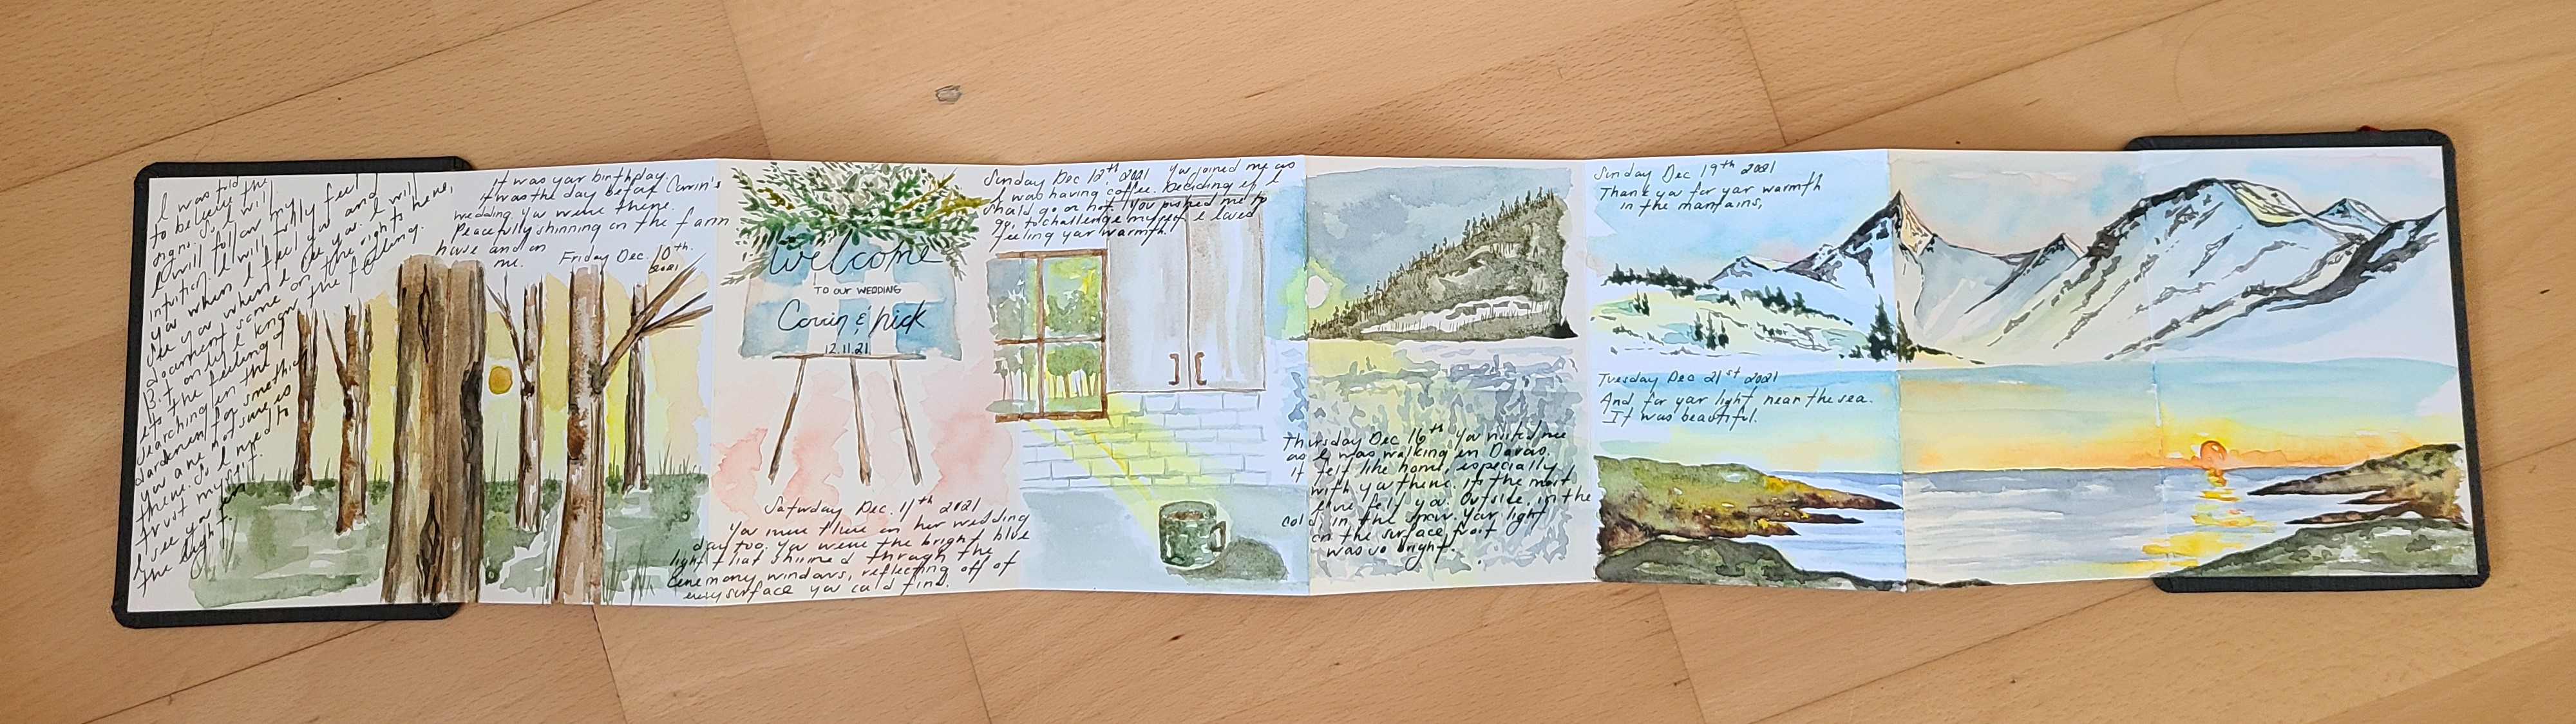 I was told
to believe the
signs. So I will.
I will follow my
intuition. I will
you when I feel you and
see you when I see you. I will
document some on the right to here,
But only I know the feeling.
its the feeling of
searching in the
garden for something
you are not sure is
there. So I need to
trust myself.
I see you in
the light.
It was your birthday.
It was the day before Corrin's
wedding. You were there.
Peacefully shinning on the farm
house and on
me.
Friday Dec. 10th.
2021
welcome
TO OUR WEDDING
Corrin & Nick
12.11.21
Saturday Dec. 11th 2021
You were there on her wedding
day too. You were the bright blue
light that shinned through the
ceremony windows, reflecting off of
every surface you could find.
Sunday Dec 12th, 2021 You joined me as
I was having coffee. Deciding if I
should go or not. You pushed me to
go, to challenge myself. I loved
feeling your warmth.
Thursday Dec 16th You visited me
as I was walking in Davos.
it felt like home, especially
with you there. its the most
live felt you. Outside, in the
cold, in the snow. Your light
on the surface frost
was so bright.
Sunday Dec 19th 2021
Thank you for your warmth
in the mountains,
Tuesday Dec 21st 2021
And for your light near the sea.
It was beautiful.